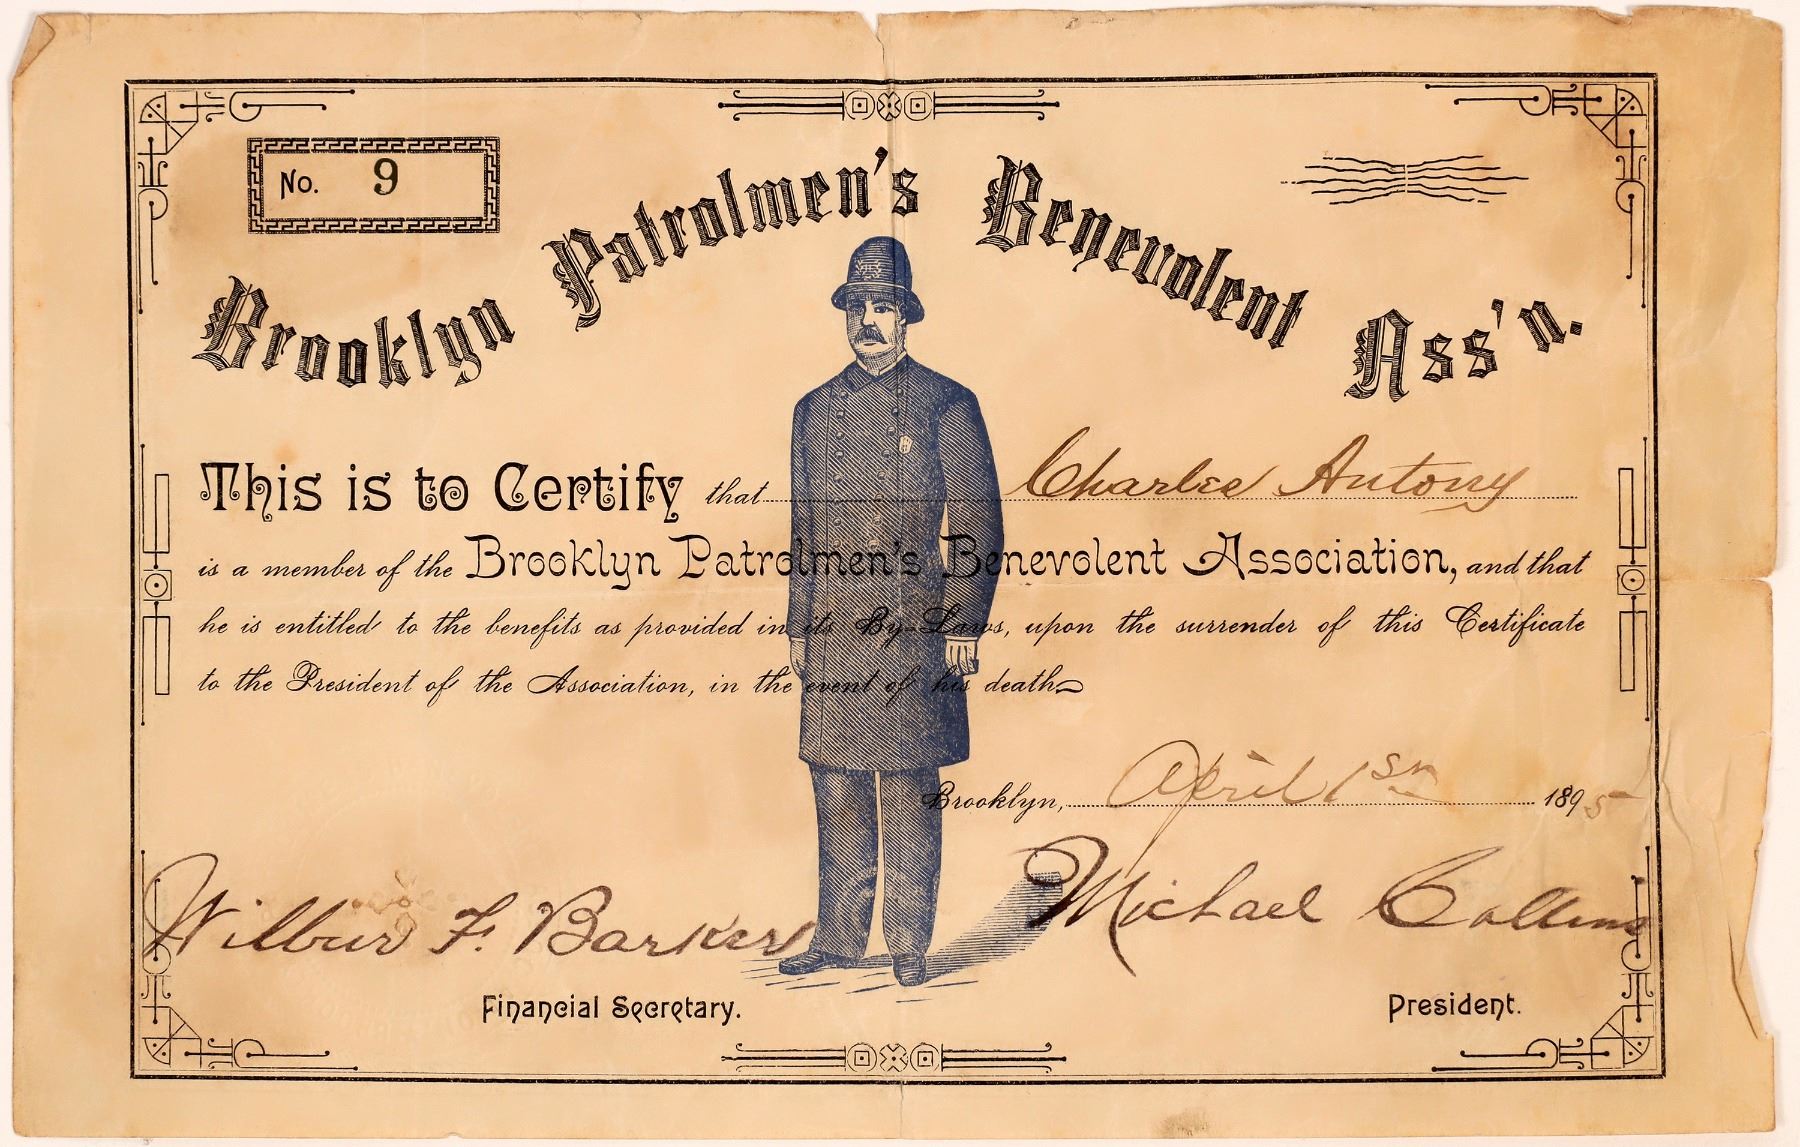 No. 9
Brooklyn Patrolmen's Benevolent Ass'n.
This is to Certify that Charles Antony
is a member of the Brooklyn Patrolmen's Benevolent Association, and that
he is entitled to the benefits as provided in its By-Laws, upon the surrender of this Certificate
to the President of the Association, in the event of his death
Brooklyn, April 1st 1895
Wilbur F. Barker Michael Collins
Financial Secretary. President.